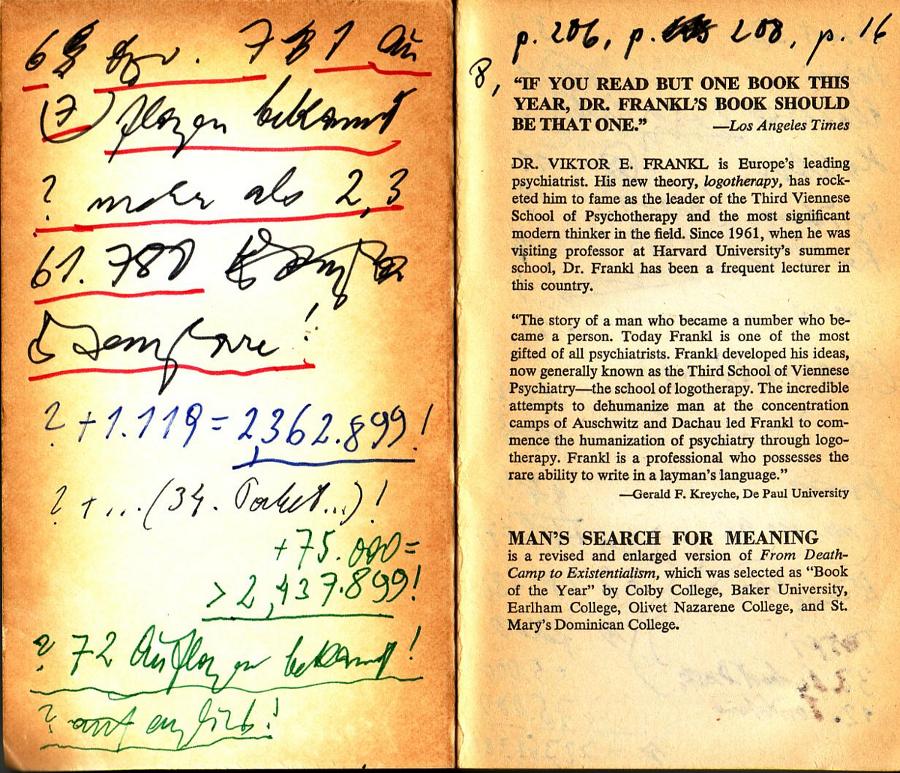 (7)
? mehr als 2,3
61.780
? + 1.119 = 2,362.899!
? + ... (34. Paket...)!
+ 75.000 =
> 2,437.899!
? 72 Auflagen bekannt!
? auf englisch!
p. 206, p. 208, p. 16
8,
“IF YOU READ BUT ONE BOOK THIS
YEAR, DR. FRANKL’S BOOK SHOULD
BE THAT ONE.” —Los Angeles Times
DR. VIKTOR E. FRANKL is Europe’s leading
psychiatrist. His new theory, logotherapy, has rock-
eted him to fame as the leader of the Third Viennese
School of Psychotherapy and the most significant
modern thinker in the field. Since 1961, when he was
visiting professor at Harvard University’s summer
school, Dr. Frankl has been a frequent lecturer in
this country.
“The story of a man who became a number who be-
came a person. Today Frankl is one of the most
gifted of all psychiatrists. Frankl developed his ideas,
now generally known as the Third School of Viennese
Psychiatry—the school of logotherapy. The incredible
attempts to dehumanize man at the concentration
camps of Auschwitz and Dachau led Frankl to com-
mence the humanization of psychiatry through logo-
therapy. Frankl is a professional who possesses the
rare ability to write in a layman’s language.”
—Gerald F. Kreyche, De Paul University
MAN’S SEARCH FOR MEANING
is a revised and enlarged version of From Death-
Camp to Existentialism, which was selected as “Book
of the Year” by Colby College, Baker University,
Earlham College, Olivet Nazarene College, and St.
Mary’s Dominican College.